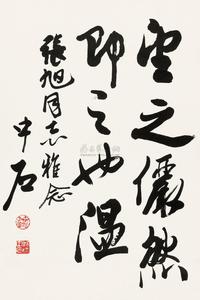 望之儼然
即之也温
張旭同志雅念
中石